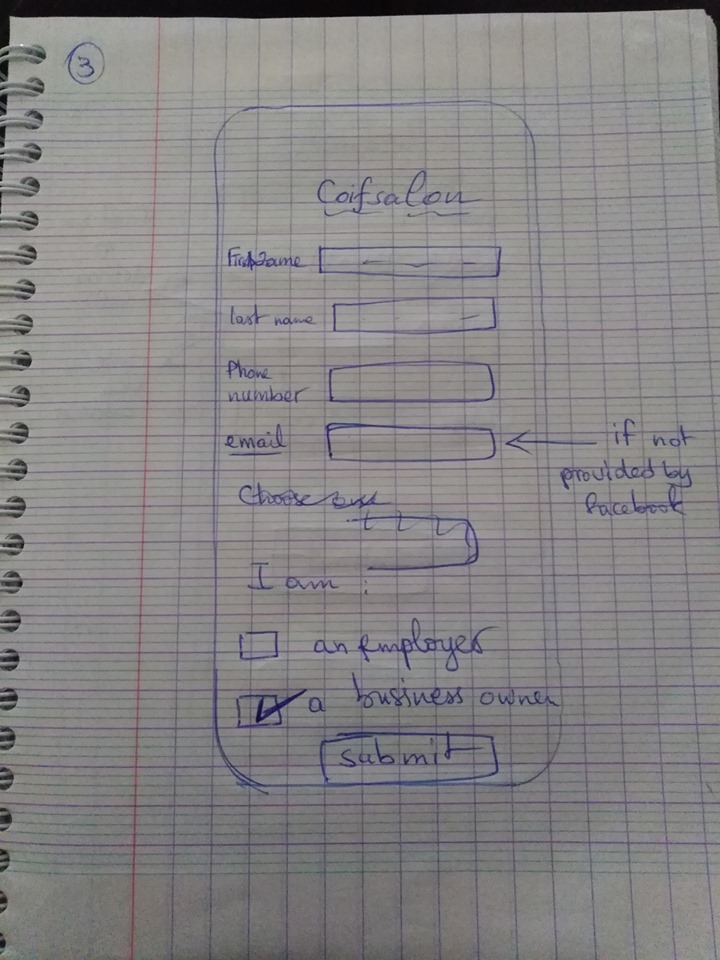 3
Coifsalon
First name
last name
Phone
number
email
if not
provided by
facebook
Choose
I am :
an employee
a business owner
submit